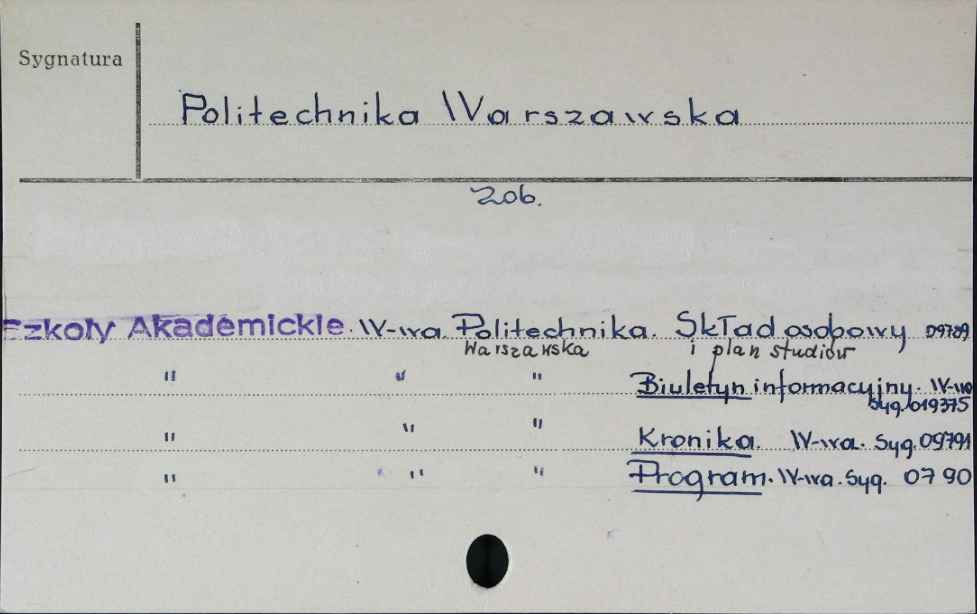 Sygnatura
Politechnika Warszawska
Zob.
Szkoły Akademickie. W-wa. Politechnika. Skład osobowy 09789
Warszawska i plan studiów
" " " Biuletyn informacyjny. W-wa
Syg. 019375
" " " Kronika. W-wa. Syg. 09791
" " " Program. W-wa. Syg. 0790